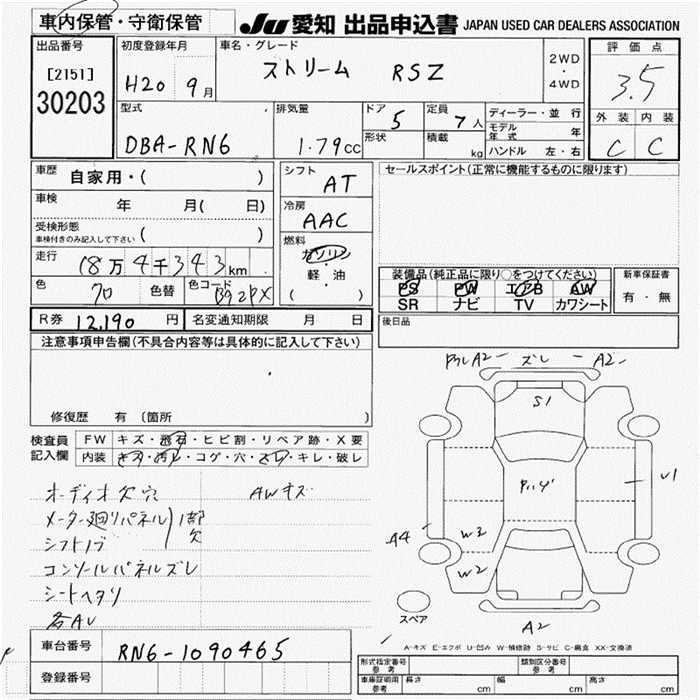 車内保管・守衛保管
JU 愛知 出品申込書 JAPAN USED CAR DEALERS ASSOCIATION
出品番号
[2151]
30203
初度登録年月
H20 9月
車名・グレード
ストリーム RSZ
2WD
・
4WD
評価点
3.5
外装 内装
C C
型式
DBA-RN6
排気量
1.79cc
ドア
5
形状
定員
7人
積載
kg
ディーラー・並行
モデル年式 年
ハンドル 左・右
車歴
自家用・( )
車検 年 月( 日)
受検形態
車検付きのみ記入して下さい ( )
走行
18万4千343km
色
クロ
色替
色コード
B92PX
シフト
AT
冷房
AAC
燃料
ガソリン
・
軽・油
( )
セールスポイント(正常に機能するものに限ります)
装備品(純正品に限り○をつけてください)
PS PW エアB AW
SR ナビ TV カワシート
新車保証書
有・無
後日品
R券 12,190 円
名変通知期限 月 日
注意事項申告欄(不具合内容等は具体的に記入して下さい)
修復歴 有 (箇所 )
検査員記入欄
FW キズ・飛石・ヒビ割・リペア跡・X要
内装 キズ・汚レ・コゲ・穴・スレ・キレ・破レ
オーディオ欠穴 AWキズ
メーター廻リパネル
シフトノブ
1部欠
コンソールパネルズレ
シートヘタリ
各AU
A2 ズレ A2
S1
U1
A4
W3
W2
A2
スペア
A-キズ E-エクボ U-凹み W-補修跡 S-サビ C-腐食 XX-交換済
車台番号 RN6-1090465
登録番号
形式指定番号 参考
類別区分番号 参考
車庫証明用 参考 長さ cm 幅 cm 高さ cm